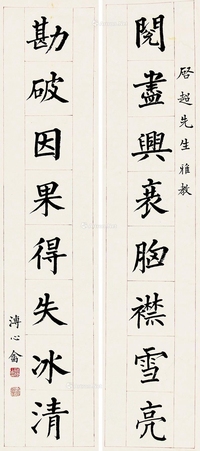 啓超先生雅教
閱盡興衰胸襟雪亮
勘破因果得失冰清
溥心畬